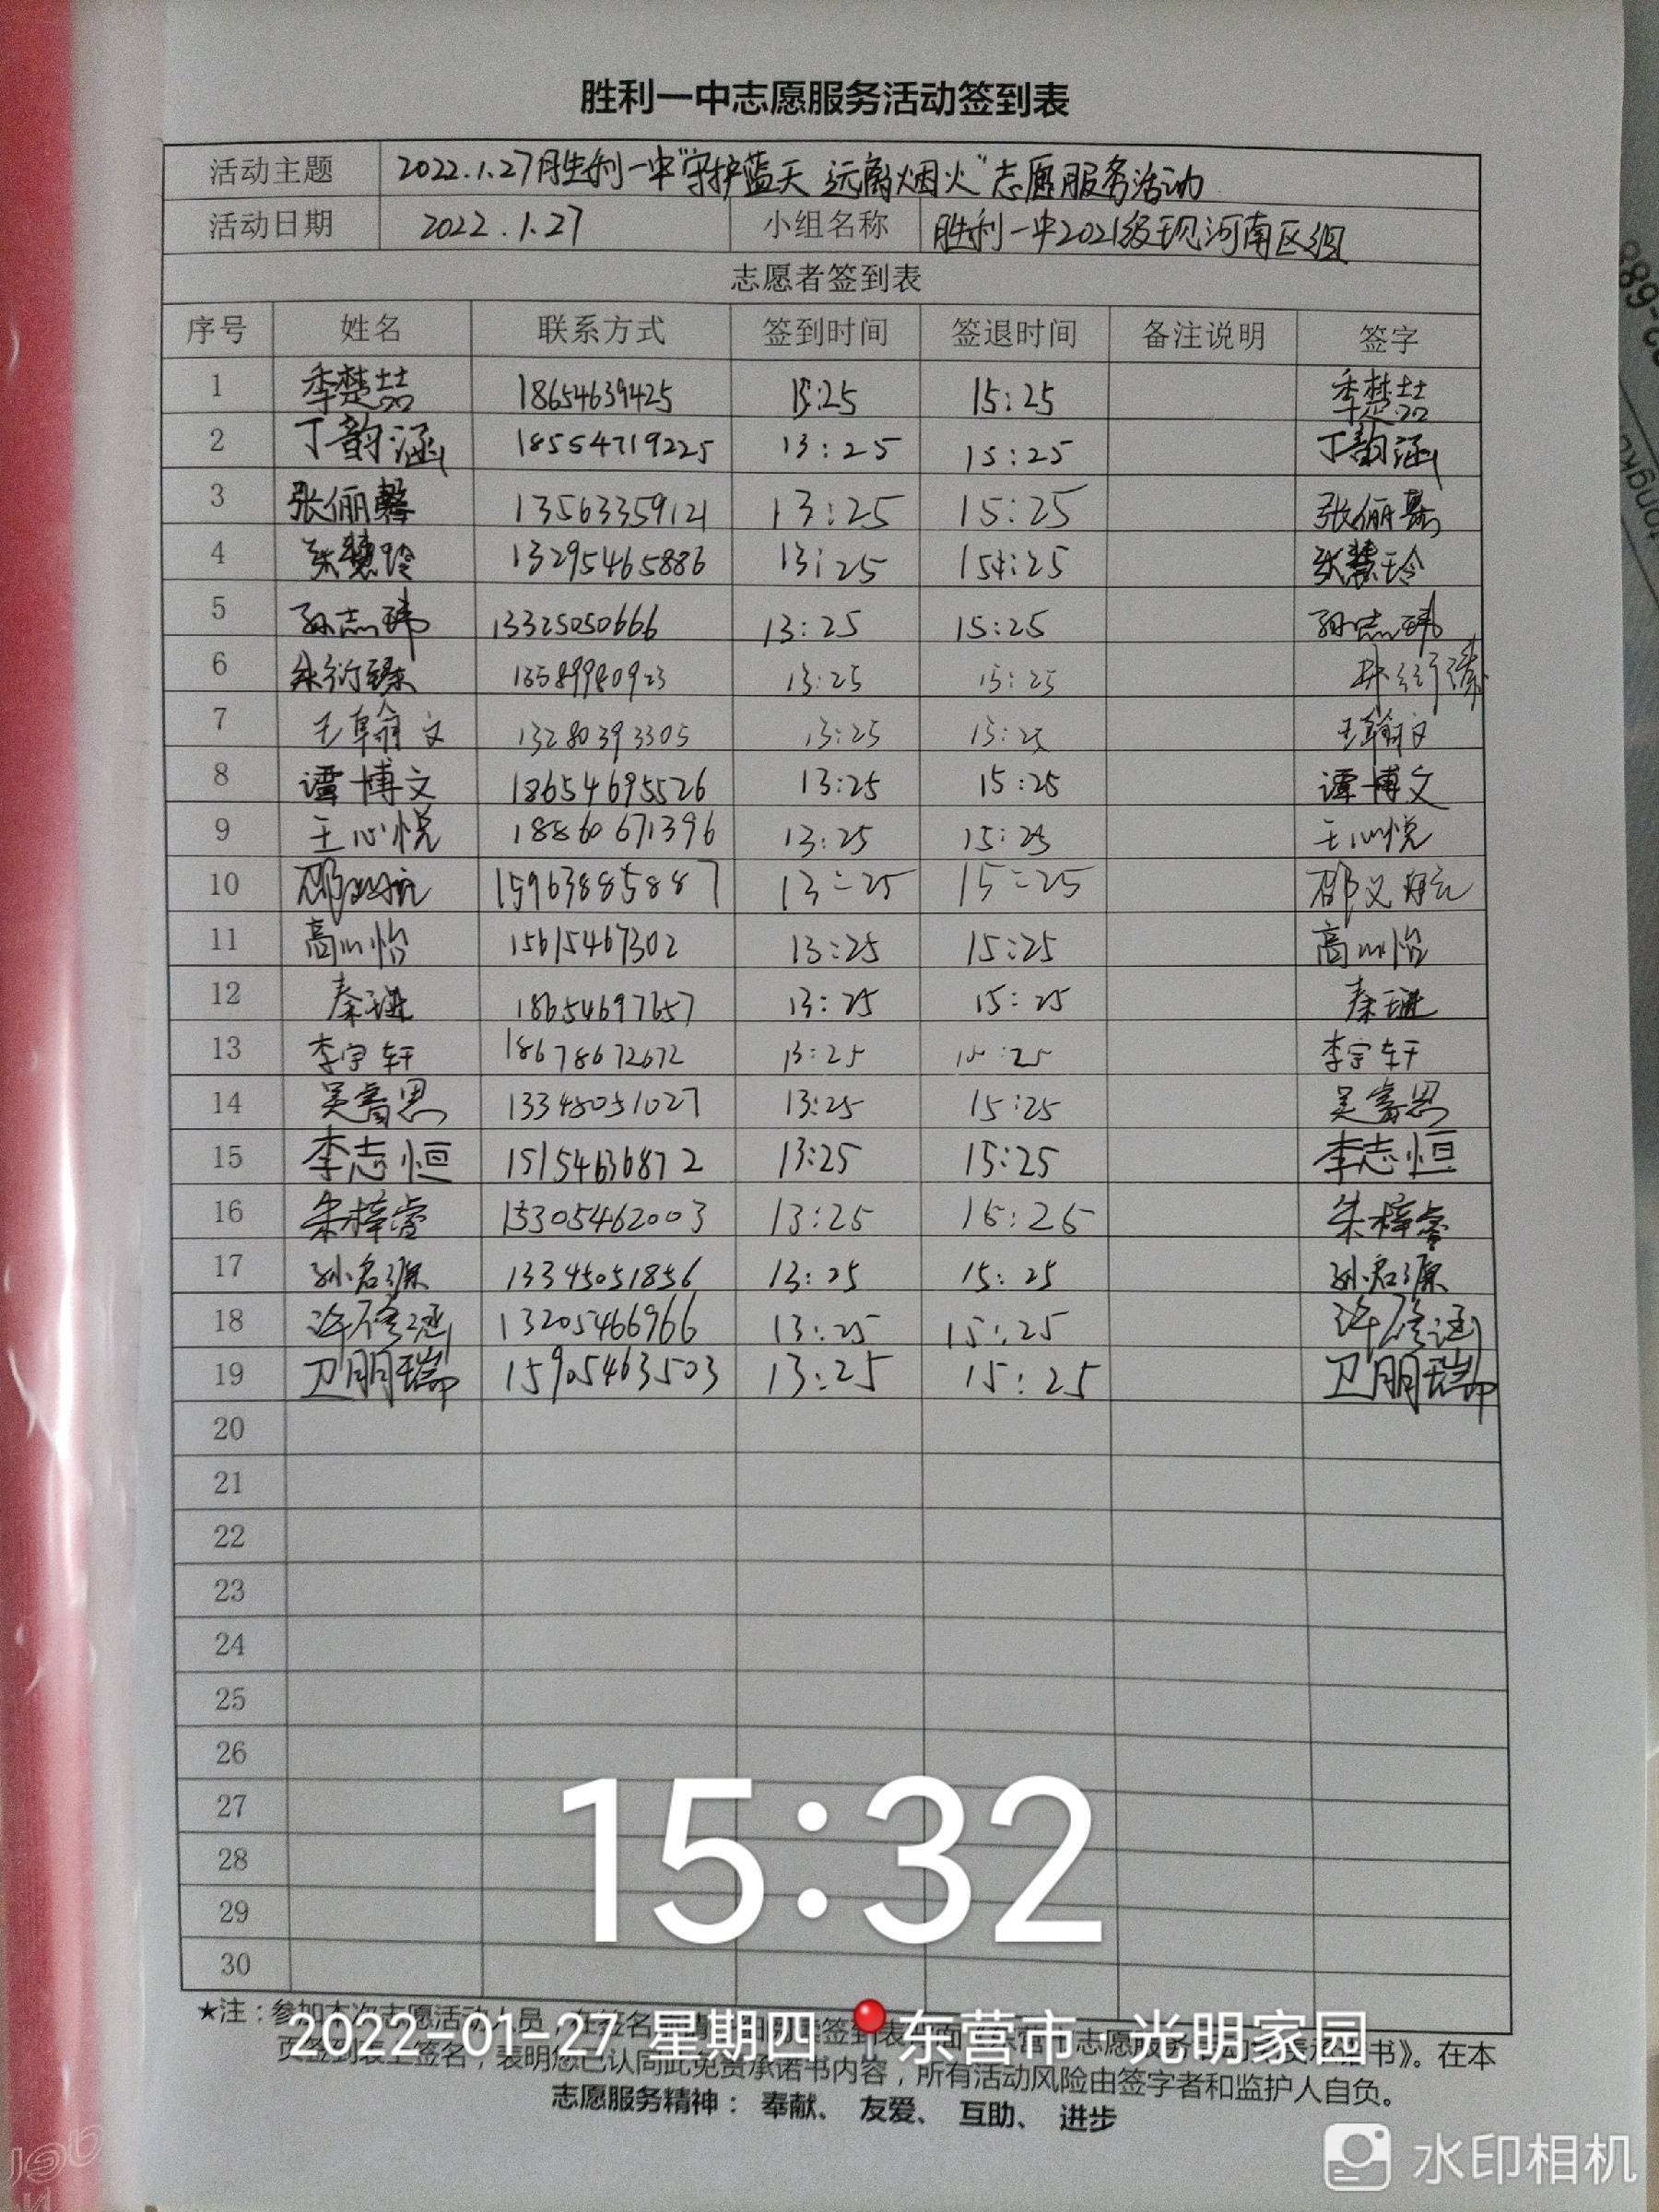 胜利一中志愿服务活动签到表
活动主题 2022.1.27胜利一中"守护蓝天 远离烟火"志愿服务活动
活动日期 2022.1.27 小组名称 胜利一中2021级现河南区组
志愿者签到表
序号 姓名 联系方式 签到时间 签退时间 备注说明 签字
1 季楚喆 18654639425 13:25 15:25 季楚喆
2 丁韵涵 18554719225 13:25 15:25 丁韵涵
3 张俪馨 13563359121 13:25 15:25 张俪馨
4 张慧玲 13295465886 13:25 15:25 张慧玲
5 孙志玮 13325050666 13:25 15:25 孙志玮
6 13589980923 13:25 15:25
7 王翰文 13280393305 13:25 15:25 王翰文
8 谭博文 18654695526 13:25 15:25 谭博文
9 王心悦 18860671396 13:25 15:25 王心悦
10 15963885887 13:25 15:25
11 高心怡 15615467302 13:25 15:25 高心怡
12 秦琎 18654697657 13:25 15:25 秦琎
13 李宇轩 18678672672 13:25 15:25 李宇轩
14 13348051027 13:25 15:25
15 李志恒 15154636872 13:25 15:25 李志恒
16 朱梓睿 15305462003 13:25 15:25 朱梓睿
17 孙名源 13345051856 13:25 15:25 孙名源
18 许修涵 13205466966 13:25 15:25 许修涵
19 卫朋瑞 15905463503 13:25 15:25 卫朋瑞
20
21
22
23
24
25
26
27
28
29
30
15:32
★注：参加本次志愿活动人员，在签名 书》。在本
2022-01-27 星期四 东营市·光明家园
页签到表上签名，表明您已认同此免责承诺书内容，所有活动风险由签字者和监护人自负。
志愿服务精神： 奉献、 友爱、 互助、 进步
水印相机